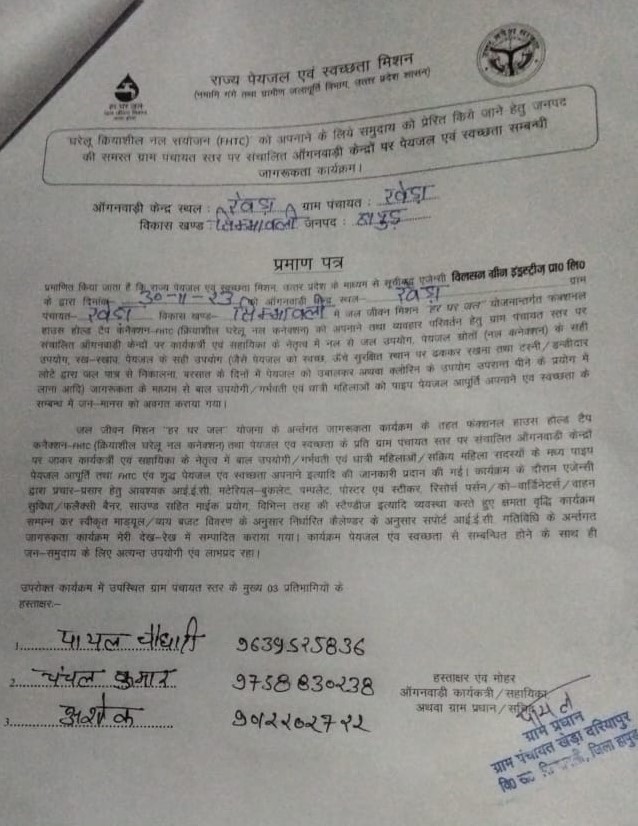 राज्य पेयजल एवं स्वच्छता मिशन
(नमामि गंगे तथा ग्रामीण जलापूर्ति विभाग, उत्तर प्रदेश शासन)
हर घर जल
"घरेलू क्रियाशील नल संयोजन (FHTC)' को अपनाने के लिये समुदाय को प्रेरित किये जाने हेतु जनपद
की समस्त ग्राम पंचायत स्तर पर संचालित आँगनवाड़ी केन्द्रों पर पेयजल एवं स्वच्छता सम्बन्धी
जागरूकता कार्यक्रम।
आँगनवाड़ी केन्द्र स्थल : खेड़ा ग्राम पंचायत : खेड़ा
विकास खण्ड : सिम्भावली जनपद : हापुड़
प्रमाण पत्र
प्रमाणित किया जाता है कि राज्य पेयजल एवं स्वच्छता मिशन, उत्तर प्रदेश के माध्यम से सूचीबद्ध एजेन्सी विलसन ग्रीन इंडस्ट्रीज प्रा० लि०
के द्वारा दिनांक 30-11-23 को आँगनवाड़ी केन्द्र स्थल- खेड़ा ग्राम
पंचायत- खेड़ा विकास खण्ड- सिम्भावली में जल जीवन मिशन "हर घर जल" योजनान्तर्गत फंक्शनल
हाउस होल्ड टैप कनेक्शन-FHTC (क्रियाशील घरेलू नल कनेक्शन) को अपनाने तथा व्यवहार परिवर्तन हेतु ग्राम पंचायत स्तर पर
संचालित आँगनवाड़ी केन्द्रों पर कार्यकर्त्री एवं सहायिका के नेतृत्व में नल से जल उपयोग, पेयजल स्रोतों (नल कनेक्शन) के सही
उपयोग, रख-रखाव, पेयजल के सही उपयोग (जैसे पेयजल को स्वच्छ, ऊँचे सुरक्षित स्थान पर ढककर रखना तथा टस्नी/डन्डीदार
लोटे द्वारा जल पात्र से निकालना, बरसात के दिनों में पेयजल को उबालकर अथवा क्लोरिन के उपयोग उपरान्त पीने के प्रयोग में
लाना आदि) जागरूकता के माध्यम से बाल उपयोगी/गर्भवती एवं धात्री महिलाओं को पाइप पेयजल आपूर्ति अपनाने एवं स्वच्छता के
सम्बन्ध में जन-मानस को अवगत कराया गया।
जल जीवन मिशन "हर घर जल" योजना के अर्न्तगत जागरूकता कार्यक्रम के तहत फंक्शनल हाउस होल्ड टैप
कनेक्शन-FHTC (क्रियाशील घरेलू नल कनेक्शन) तथा पेयजल एवं स्वच्छता के प्रति ग्राम पंचायत स्तर पर संचालित आँगनवाड़ी केन्द्रों
पर जाकर कार्यकर्त्री एवं सहायिका के नेतृत्व में बाल उपयोगी/गर्भवती एवं धात्री महिलाओं/सक्रिय महिला सदस्यों के मध्य पाइप
पेयजल आपूर्ति तथा FHTC एंव शुद्ध पेयजल एंव स्वच्छता अपनाने इत्यादि की जानकारी प्रदान की गई। कार्यक्रम के दौरान एजेन्सी
द्वारा प्रचार-प्रसार हेतु आवश्यक आई.ई.सी. मटेरियल-बुकलेट, पमपलेट, पोस्टर एवं स्टीकर, रिसोर्स पर्सन/को-वार्डिनेटर्स/वाहन
सुविधा/फलैक्सी बैनर, साउण्ड सहित माईक प्रयोग, विभिन्न तरह की स्टैण्डीज इत्यादि व्यवस्था करते हुए क्षमता वृद्धि कार्यक्रम
सम्पन्न कर स्वीकृत माड्यूल/व्यय बजट विवरण के अनुसार निर्धारित कैलेण्डर के अनुसार सपोर्ट आई.ई.सी. गतिविधि के अर्न्तगत
जागरूकता कार्यक्रम मेरी देख-रेख में सम्पादित कराया गया। कार्यक्रम पेयजल एंव स्वच्छता से सम्बन्धित होने के साथ ही
जन-समुदाय के लिए अत्यन्त उपयोगी एंव लाभप्रद रहा।
उपरोक्त कार्यक्रम में उपस्थित ग्राम पंचायत स्तर के मुख्य 03 प्रतिभागियों के
हस्ताक्षर:-
1. पायल चौधारी 9639525836
2. चंचल कुमार 9758830238
3. अशोक
हस्ताक्षर एंव मोहर
आँगनवाड़ी कार्यकर्त्री/सहायिका
अथवा ग्राम प्रधान/सचिव
पायल
ग्राम प्रधान
ग्राम पंचायत खेड़ा दरियापुर
जिला हापुड़